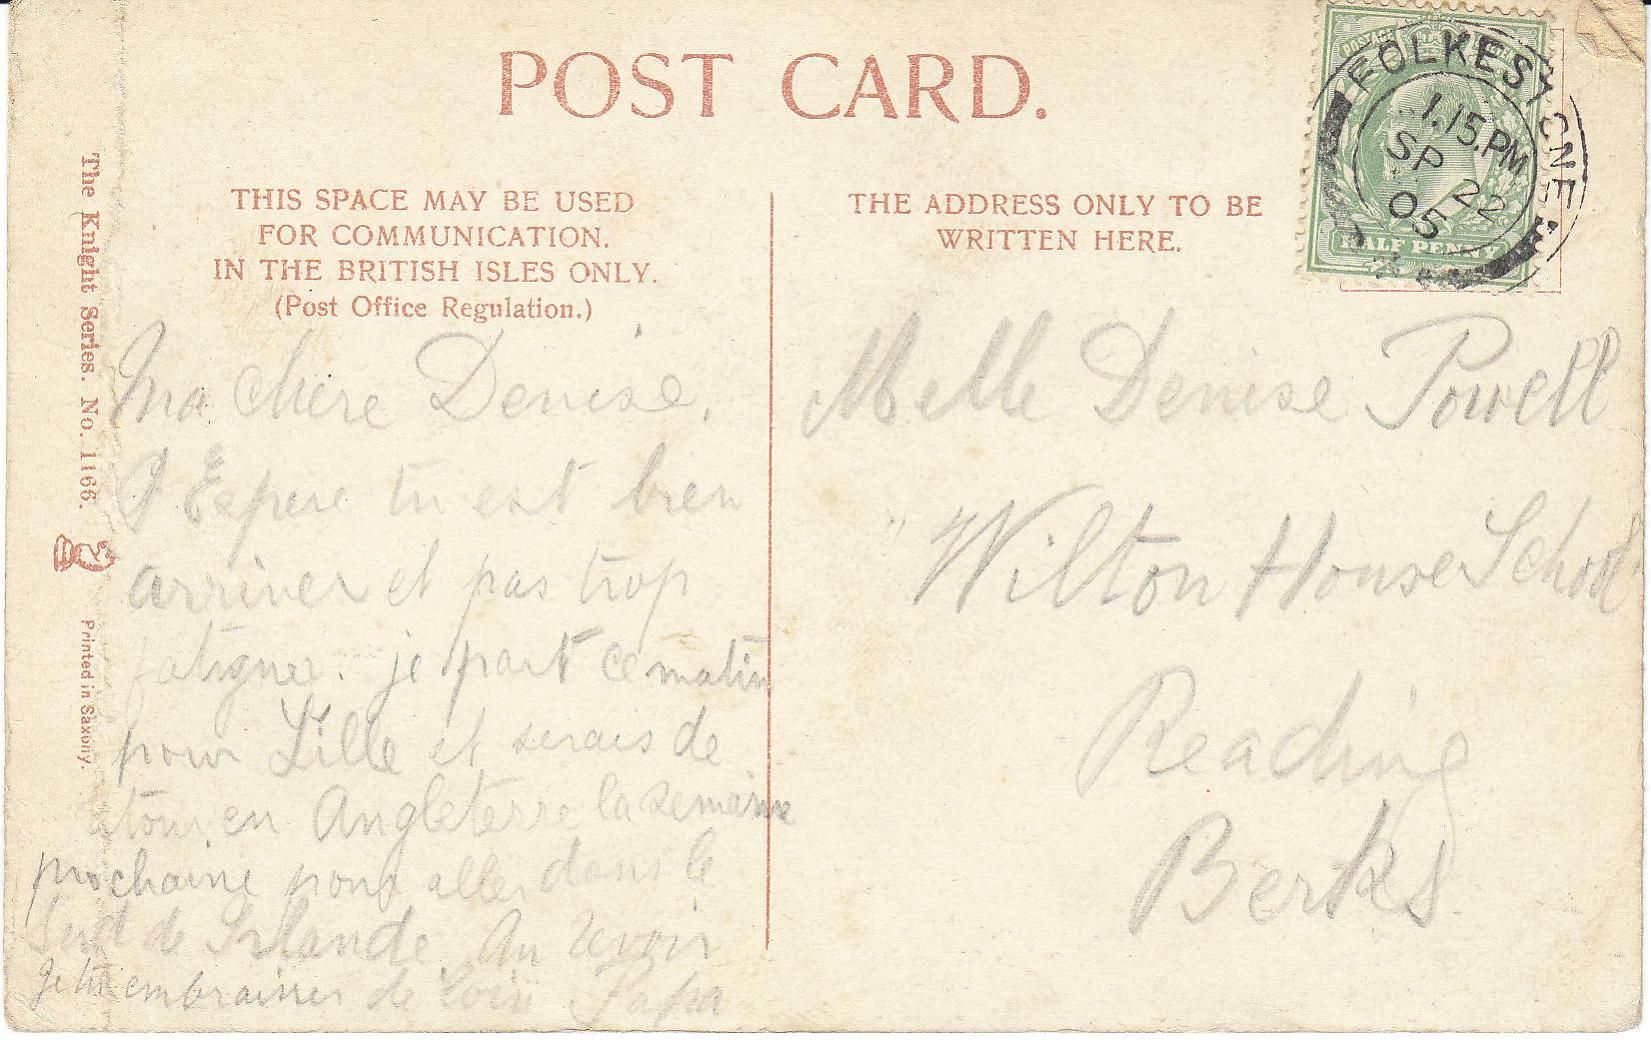 POST CARD.
THIS SPACE MAY BE USED
FOR COMMUNICATION.
IN THE BRITISH ISLES ONLY.
(Post Office Regulation.)
THE ADDRESS ONLY TO BE
WRITTEN HERE.
POSTAGE
HALF PENNY
FOLKESTONE
1.15.PM
SP 22
05
The Knight Series. No. 1166.
Printed in Saxony.
Ma chere Denise,
J Espere tu est bien
arriver et pas trop
fatiguer. je part ce matin
pour Lille et serais de
en Angleterre la semaine
prochaine pour aller dans le
Sud de Irlande Au revoir
Je t' embrasser de loin Papa
Melle Denise Powell
"Wilton House School"
Reading
Berks